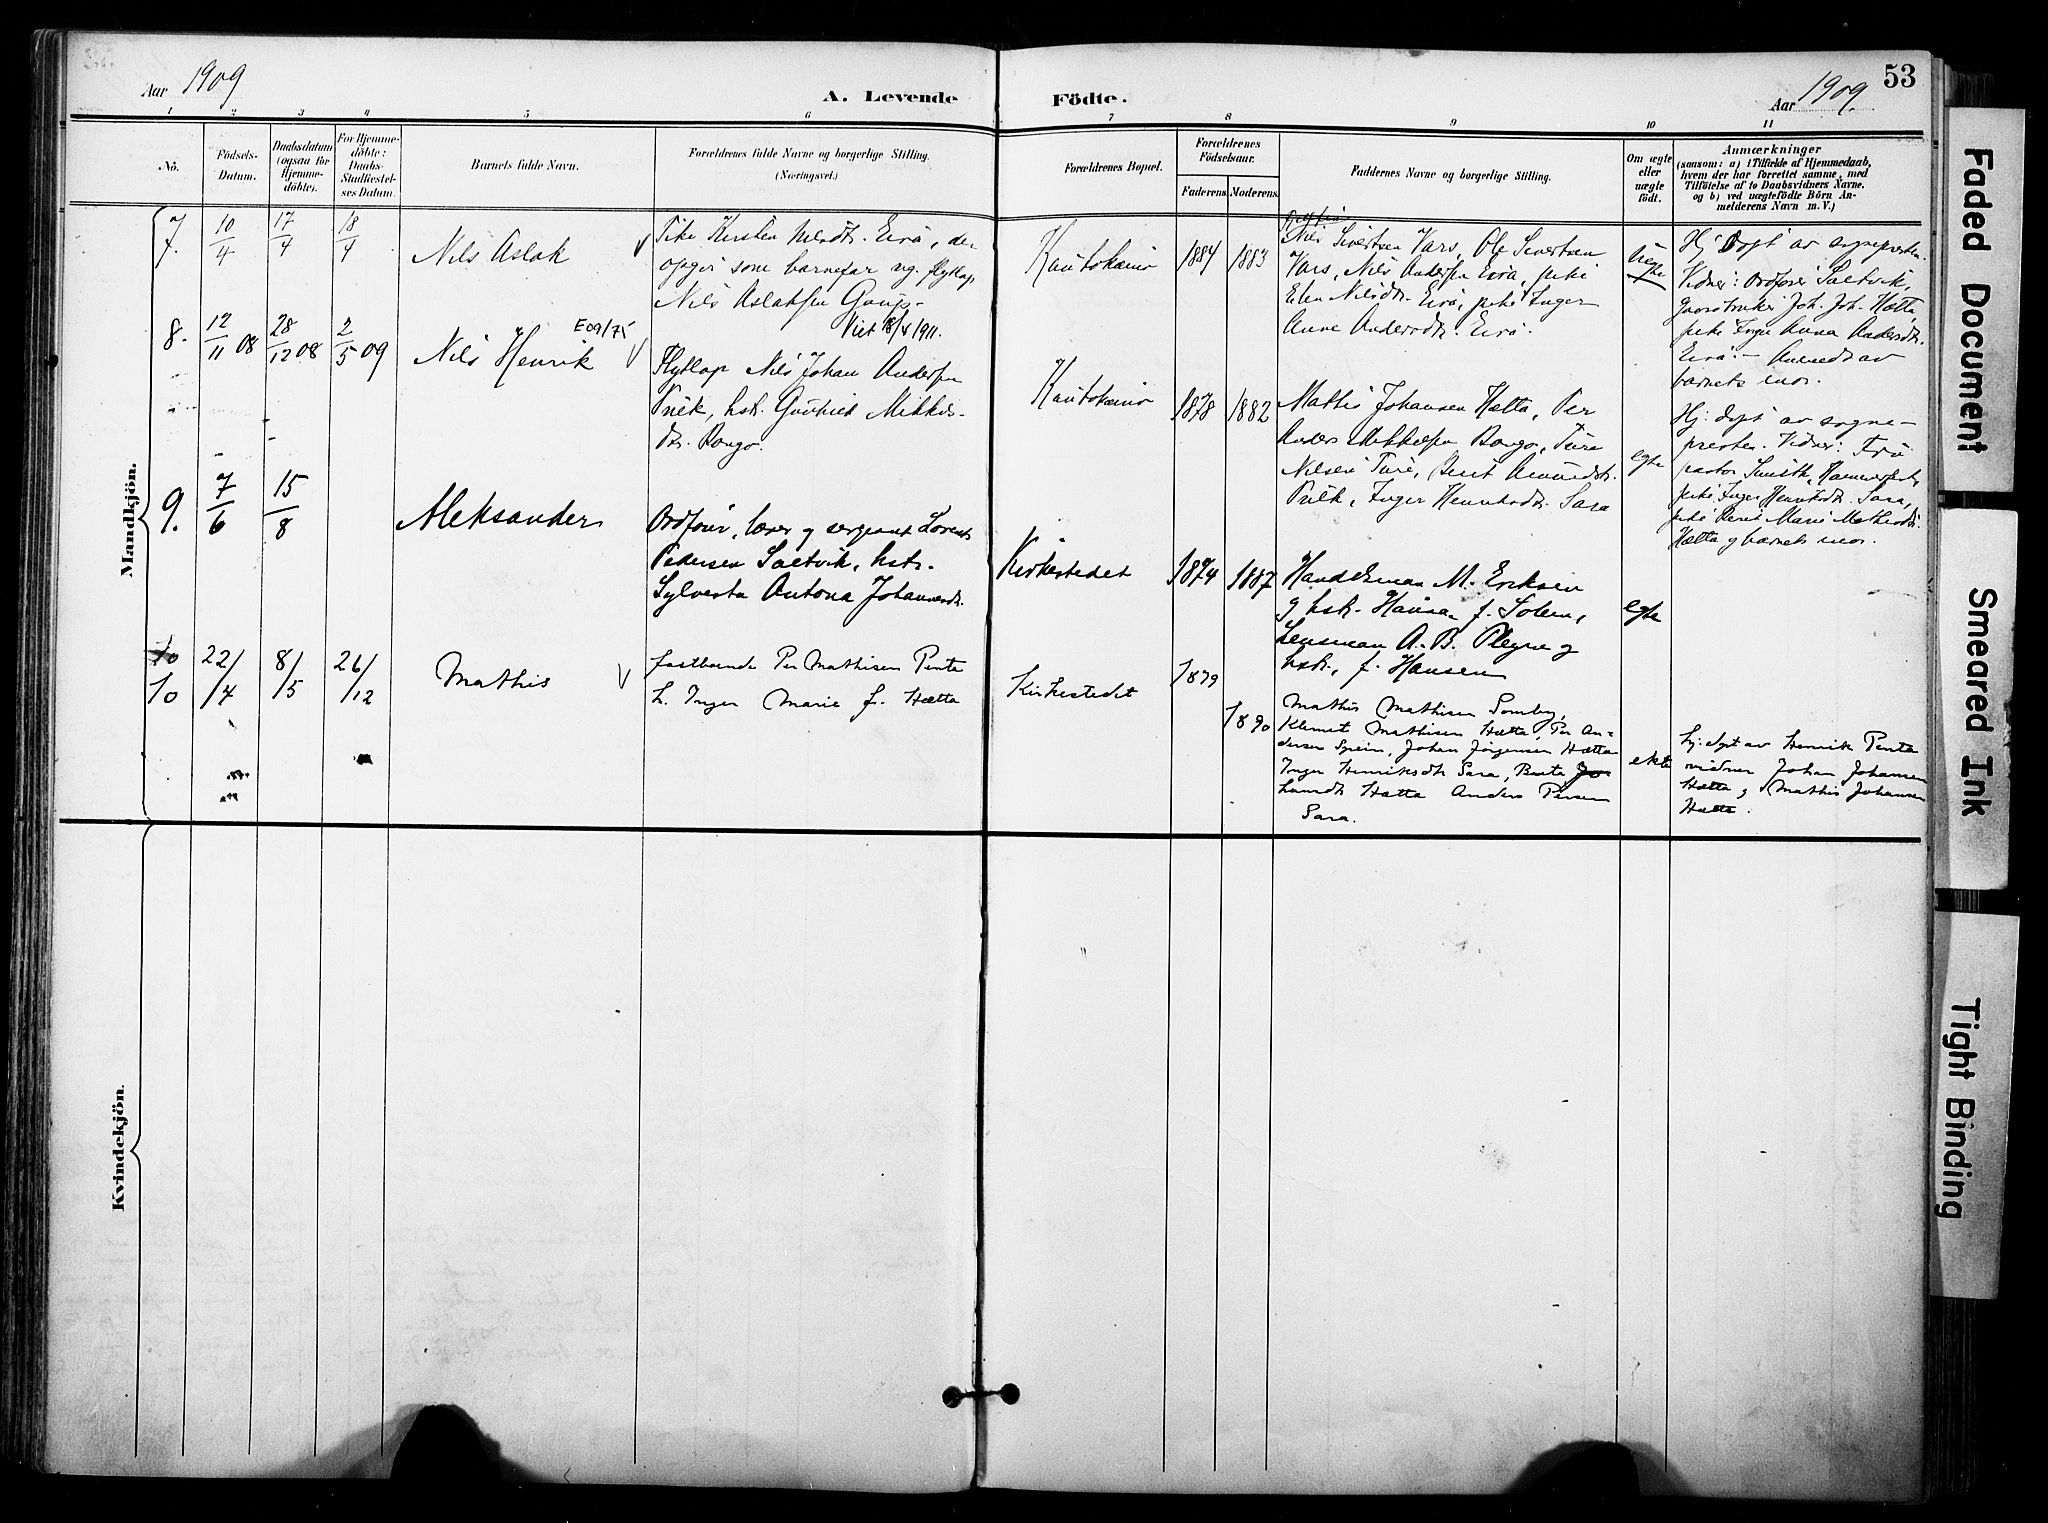 53
Aar 1909
A. Levende
Födte.
Aar 1909.
1 2 3 4 5 6 7 8 9 10 11
No.
Födsels-
Datum.
Daabsdatum
(ogsaa for
Hjemme-
döbte).
For Hjemme-
döbte:
Daabs-
Stadfæstel-
ses Datum.
Barnets fulde Navn.
Forældrenes fulde Navne og borgerlige Stilling.
(Næringsvei.)
Forældrenes Bopæl.
Forældrenes
Födselsaar.
Faderens.
Moderens.
Faddernes Navne og borgerlige Stilling.
Om ægte
eller
uægte
födt.
Anmærkninger
(saasom: a) i Tilfælde af Hjemmedaab,
hvem der har forrettet samme, med
Tilföielse af to Daabsvidners Navne.
og b) ved uægtefödte Börn An-
melderens Navn m. V.)
Mandkjön.
7. 10/4 17/4 18/4
Nils Aslak
Pike Kirsten Nilsdtr. Eira, der
opgir som barnefar ug. flytlap
Nils Aslaksen Gaup.
Kautokeino
1884 1883
Nils Sivertsen Vars, Ole Sivertsen
Vars, Nils Andersen Eira, pike
Elen Nilsdtr. Eira, pike Inger
Anne Andersdtr. Eira.
uegte
Hj. døpt av sogneprесten
Vidner: Ordfører Saltvik,
gaardbruker Joh. Joh. Hætta,
pike Inger Anna Andersdtr.
Eira. – Anmeldt av
barnets mor.
8. 12/11 08 28/12 08 2/5 09
Nils Henrik
E09/75
Viet 18/4 1911.
Flytlap Nils Johan Andersen
Triik, hstr. Gudniet Mikkels-
dtr. Bongo.
Kautokeino
1878 1882
Mattis Johansen Hætta, Per
Anders Mikkelsen Bongo, Ture
Nilsen Turi, Berit Amundsdtr.
Triik, Inger Henriksdtr. Sara
egte
Hj. døpt av sogne-
presten. Vidner: Fru
pastor Smith, Hammerfest,
pike Inger Henriksdtr. Sara,
pike Berit Marie Mathisdtr.
Hætta og barnets mor.
9. 7/6 15/8
Aleksander
Ordfører, lærer og sergeant Lorents
Pedersen Saltvik, hstr.
Sylvesta Antona Johannesdtr.
Kirkestedet
1874 1887
Handelsman M. Eriksen
og hstr. Hansa f. Solem,
Lensman A. B. Plegne og
hstr. f. Hansen
egte
10
10 22/4 8/5 26/12
Mathis
fastboende Per Mathisen Penta
h. Inger Marie f. Hætta
Kirkestedet
1879
1890
Mathis Mathisen Somby,
Klemet Mathisen Hætta, Per An-
dersen Spein, Johan Jørgensen Hætta
Inger Henriksdtr Sara, Berta
Hætta Anders Persen
Sara.
ekte
hj. døpt av Henrik Penta
vidner Johan Johansen
Hætta og Mathis Johansen
Hætta.
Kvindekjön.
Faded Document
Smeared Ink
Tight Binding